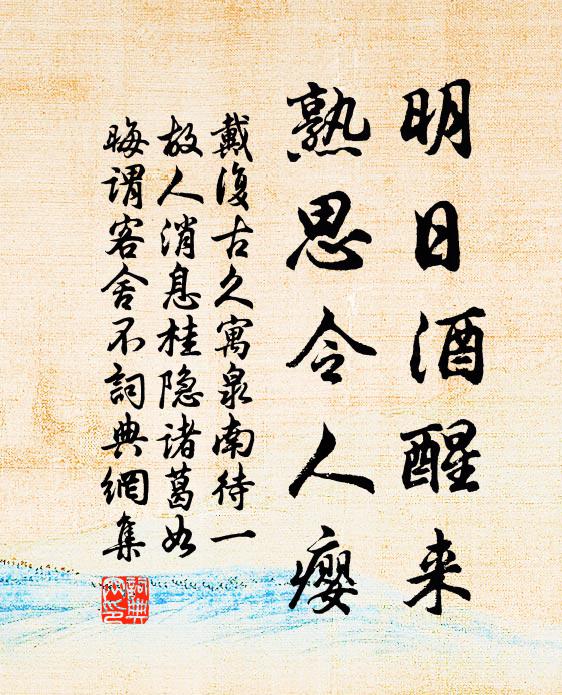 明日酒醒来
熟思令人瘿
戴復古久寓泉南待一
故人消息桂隐诸葛如
晦谓客舍不詞典網集